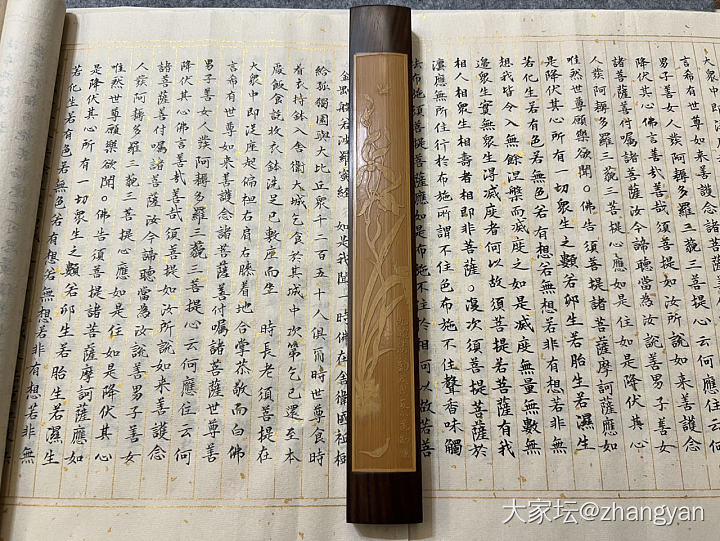 大衆中即從
言希有世尊如來善護念諸菩薩善付囑諸菩薩世尊善
男子善女人發阿耨多羅三藐三菩提心云何應住云何
降伏其心佛言善哉善哉須菩提如汝所說如來善護念
諸菩薩善付囑諸菩薩汝今諦聽當為汝說善男子善女
人發阿耨多羅三藐三菩提心應如是住如是降伏其心
唯然世尊願樂欲聞。佛告須菩提諸菩薩摩訶薩應如
是降伏其心所有一切衆生之類若卵生若胎生若濕生
若化生若有色若無色若有想若無想若非有想若非無
想我皆令入無餘涅槃而滅度之如是滅度無量無數無
邊衆生實無衆生得滅度者何以故須菩提若菩薩有我
相人相衆生相壽者相即非菩薩。復次須菩提菩薩於
法應無所住行於布施所謂不住色布施不住聲香味觸
法布施須菩提菩薩應如是布施不住於相何以故若菩
金剛般若波羅蜜經 如是我聞一時佛在舍衛國祇樹
給孤獨園與大比丘衆千二百五十人俱爾時世尊食時
着衣持鉢入舍衛大城乞食於其城中次第乞已還至本
處飯食訖收衣鉢洗足已敷座而坐 時長老須菩提在
大衆中即從座起偏袒右肩右膝着地合掌恭敬而白佛
言希有世尊如來善護念諸菩薩善付囑諸菩薩世尊善
男子善女人發阿耨多羅三藐三菩提心云何應住云何
降伏其心佛言善哉善哉須菩提如汝所說如來善護念
諸菩薩善付囑諸菩薩汝今諦聽當為汝說善男子善女
人發阿耨多羅三藐三菩提心應如是住如是降伏其心
唯然世尊願樂欲聞。佛告須菩提諸菩薩摩訶薩應如
是降伏其心所有一切衆生之類若卵生若胎生若濕生
若化生若有色若無色若有想若無想若非有想若非無
大家坛@zhangyan